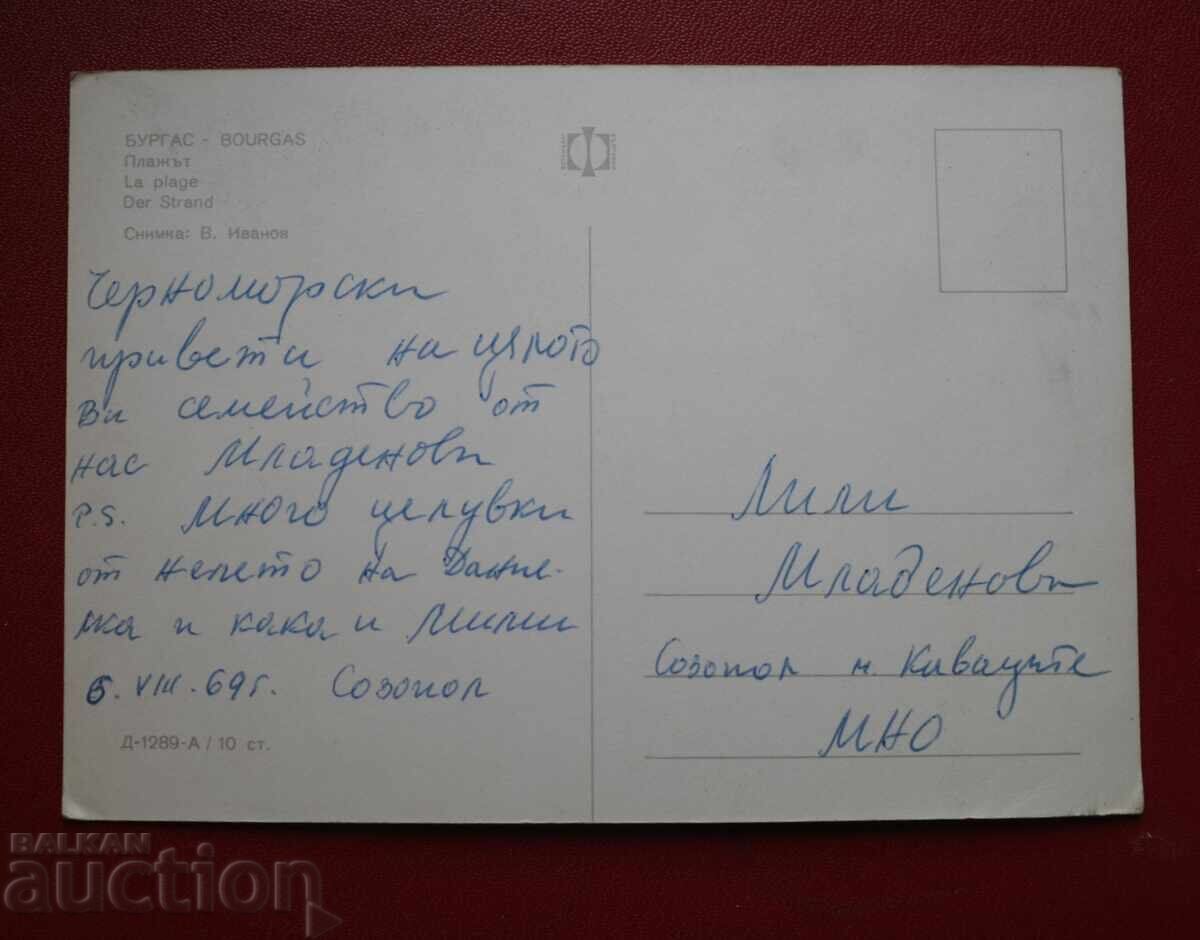 БУРГАС - BOURGAS
Плажът
La plage
Der Strand
Снимка: В. Иванов
Черноморски
привети на цялото
Ви семейство от
нас Младенови
P.S. Много целувки
от на
и кака и Мими
6. VIII. 69 г. Созопол
Д-1289-А / 10 ст.
Лили
Младенови
Созопол м. Каваците
МНО
BALKAN
auction